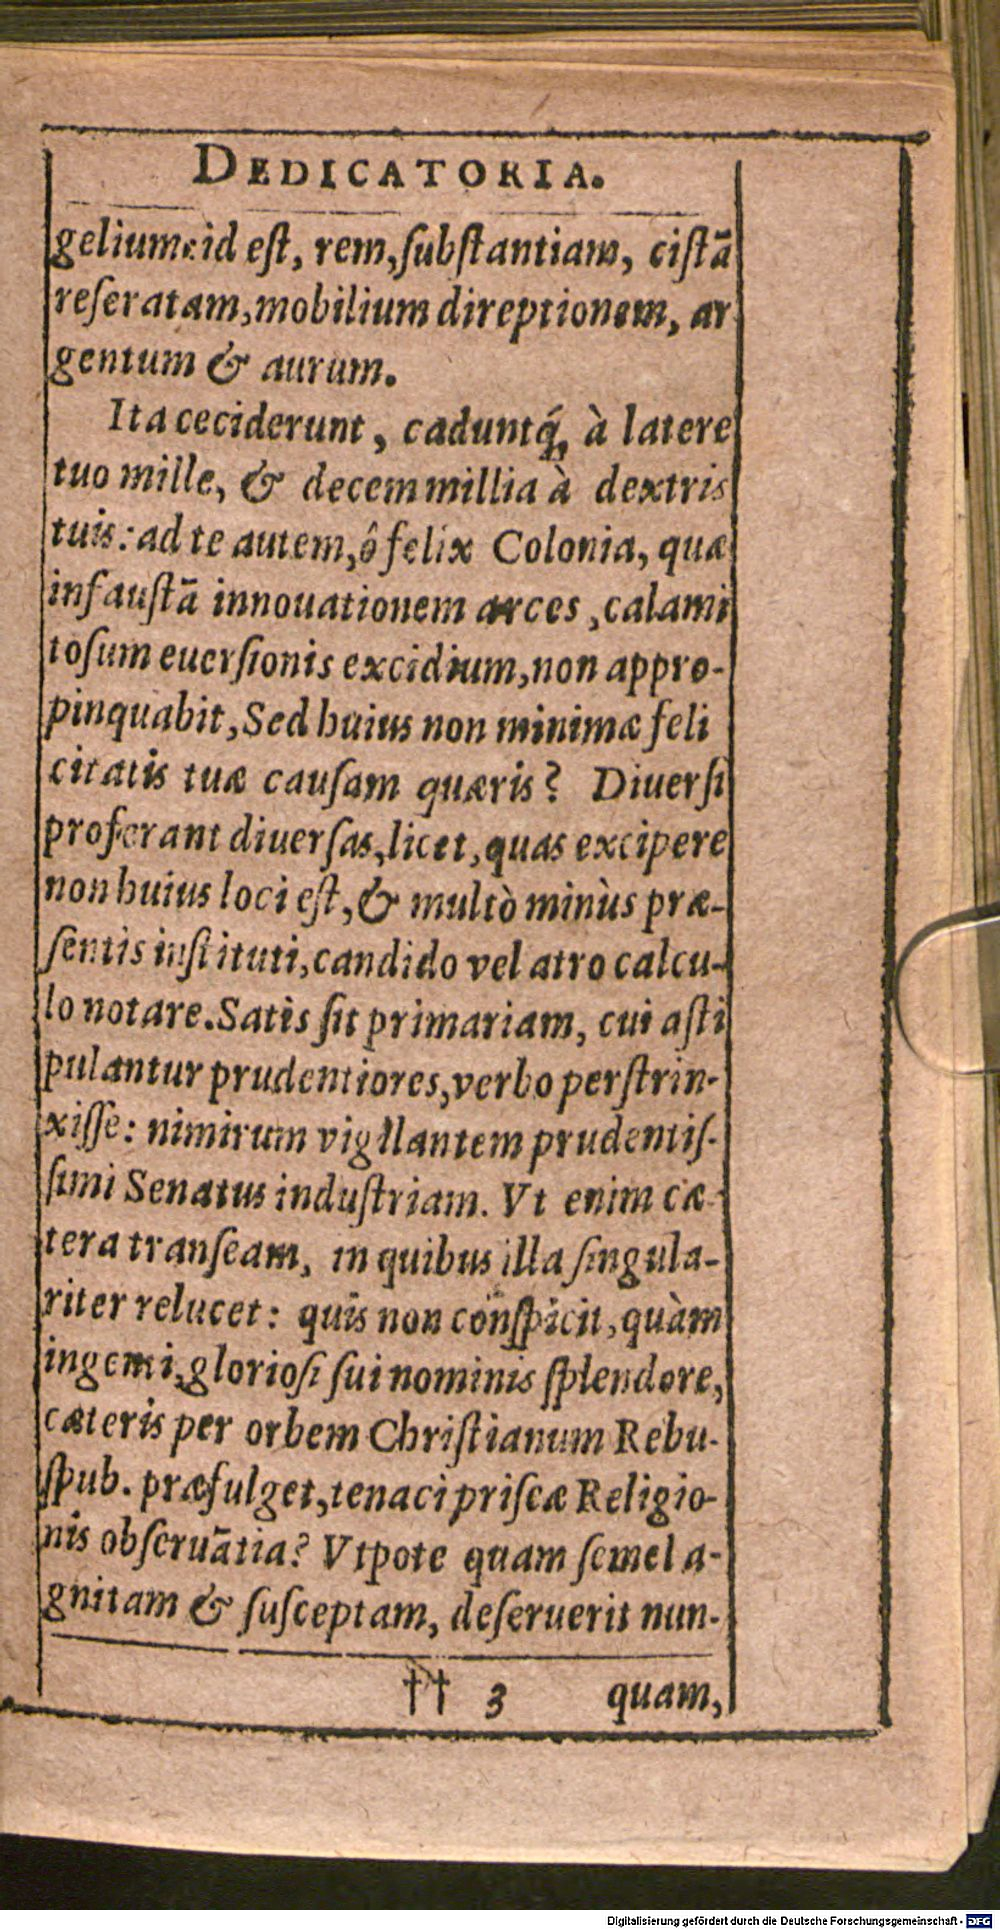 DEDICATORIA.
gelium: id eſt, rem, ſubſtantiam, ciſtã
reſeratam, mobilium direptionem, ar
gentum & aurum.
Ita ceciderunt, caduntq́;, à latere
tuo mille, & decem millia à dextris
tuis: ad te autem, ô felix Colonia, quæ
infauſtã innouationem arces, calami
toſum euerſionis excidium, non appro-
pinquabit, Sed huius non minimæ feli
citatis tuæ cauſam quæris? Diuerſi
proferant diuerſas, licet, quas excipere
non huius loci eſt, & multò minùs præ-
ſentis inſtituti, candido vel atro calcu-
lo notare. Satis ſit primariam, cui aſti
pulantur prudentiores, verbo perſtrin-
xiſſe: nimirum vigilantem prudentiſ-
ſimi Senatus induſtriam. Vt enim cæ-
tera tranſeam, in quibus illa ſingula-
riter relucet: quis non conſpicit, quàm
ingenti, glorioſi ſui nominis ſplendore,
cæteris per orbem Chriſtianum Rebu-
ſpub. præfulget, tenaci priſcæ Religio-
nis obſeruãtia? Vtpote quam ſemel a-
gnitam & ſuſceptam, deſeruerit nun-
†† 3 quam,
Digitalisierung gefördert durch die Deutsche Forschungsgemeinschaft - DFG